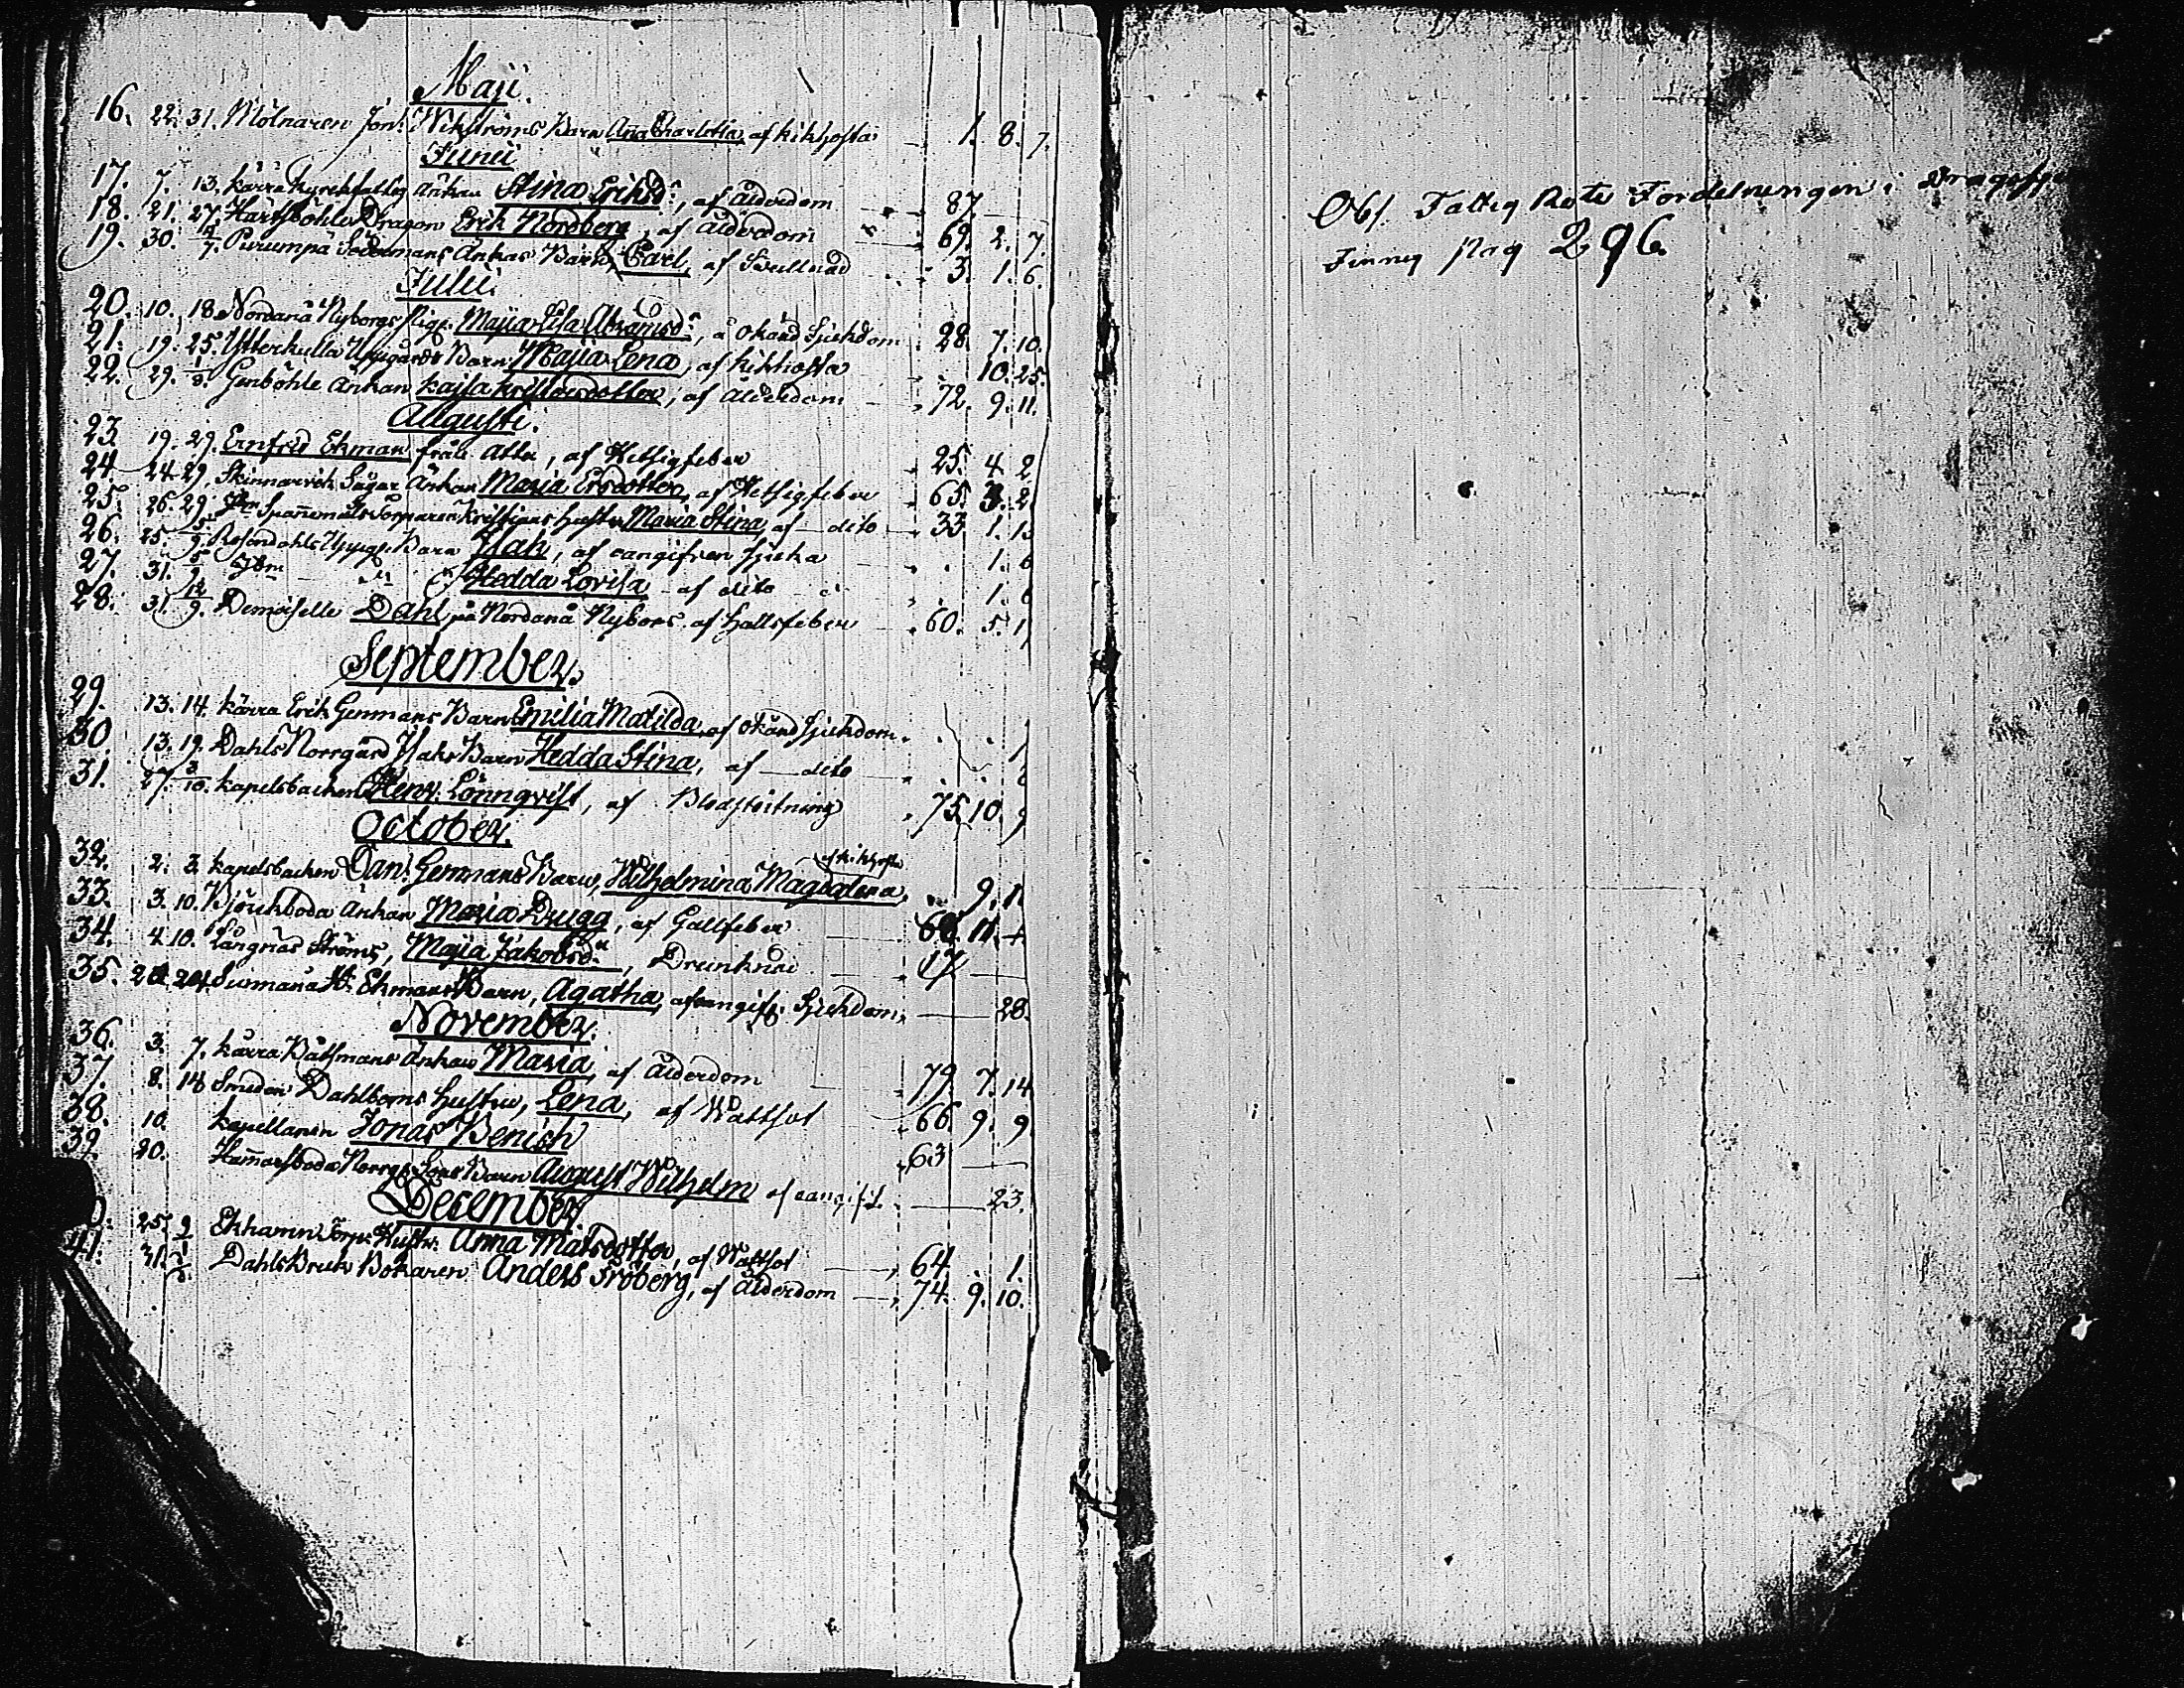 Maji.
16. 22. 31. Mölnaren Jon: Wikströms Barn Aña Charlotta, af kikhosta 1. 8. 7.
Junii
17. 7. 13. kärra kyrckfattig Änkan Stina Eriksdr, af ålderdom 87.
18. 21. 27. Dragon Erik Nordberg, af ålderdom 69. 2. 7.
19. 30. 7. Purumpä Södermans Änkas Barn, Carl, af 3. 1. 6.
Julii.
20. 10. 18. Nordanå Nyborgs Pige Maija Lisa Abramsdr, a okänd Sjukdom 28. 7. 10.
21. 19. 25. Ytterkulla Uppgårds Barn Maija Lena, af kikhosta 10. 25.
22. 29. 1/8. Genböhle Änkan kajsa kristersdotter, af ålderdom 72. 9. 11.
Augusti.
23. 19. 29. Ernfrid Ekman från Attu, af Hetsigfeber 25. 4. 2
24. 24. 29. Skinnarvik Sågar Änkan Maria Ersdotter, af Hetsigfeber 65. 3. 2
25. 26. 29. Spañemäls Torparen Kristians hustru Maria Stina, af dito 33. 1. 13
26. 25. 5/9. Rosendahls Uppg: Barn Isak, af oangifven sjuka 1. 6
27. 31. 5/9. Ibm Hedda Lovisa af dito 1. 6
28. 31. 12/9. Demoiselle Dahl, på Nordanå Nybors. af hallsfeber 60. 5. 1
September.
29. 13. 14. kärra Erik Genmans Barn Emilia Matilda, af okänd Sjukdom. 1
30. 13. 19. Dahls Norrgård Isaks Barn Hedda Stina, af dito
31. 27. 3/10. kapelsbacken Henr: Lönnqvist, af Blodstörtning 75. 10. 9
October.
32. 2. 3. kapelsbacken Dan: Genmans Barn, Wilhelmina Magdalena, af kikhosta 9. 1
33. 3. 10. Björkboda Änkan Maria Drugg, af Gallfeber 60. 11. 4
34. 4. 10. Långnäs Ströms, Maija Jakobsdr, Drunknad 17
35. 20. 24. Sunnanå Hr Ekmans Barn, Agatha, af oangift. Sjukdom, 28.
November.
36. 3. 7. kärra Båtsmans Änkan Maria, af ålderdom 79. 7. 14
37. 8. 14. Smeden Dahlboms hustru, Lena, af Wattsot 66. 9. 9
38. 10. kapellanen Jonas Benich 63
39. 20. Hamarsboda Norrg: Barn August Wilhelm af oangift. 23.
December.
25. Ekhamn Torp: Hustr: Anna Matsdotter, af Wattsot 64. 1.
41. 31. Dahls Bruk Bokaren Anders Fröberg, af ålderdom 74. 9. 10.
Obs. Fattig Rote Fördelningen i Dragsfj
Finnes pag 296.